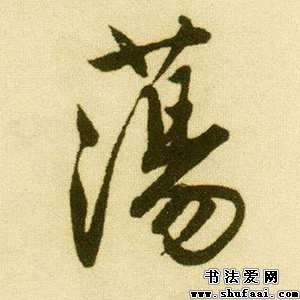 蕩
书法爱网
www.shufaai.com